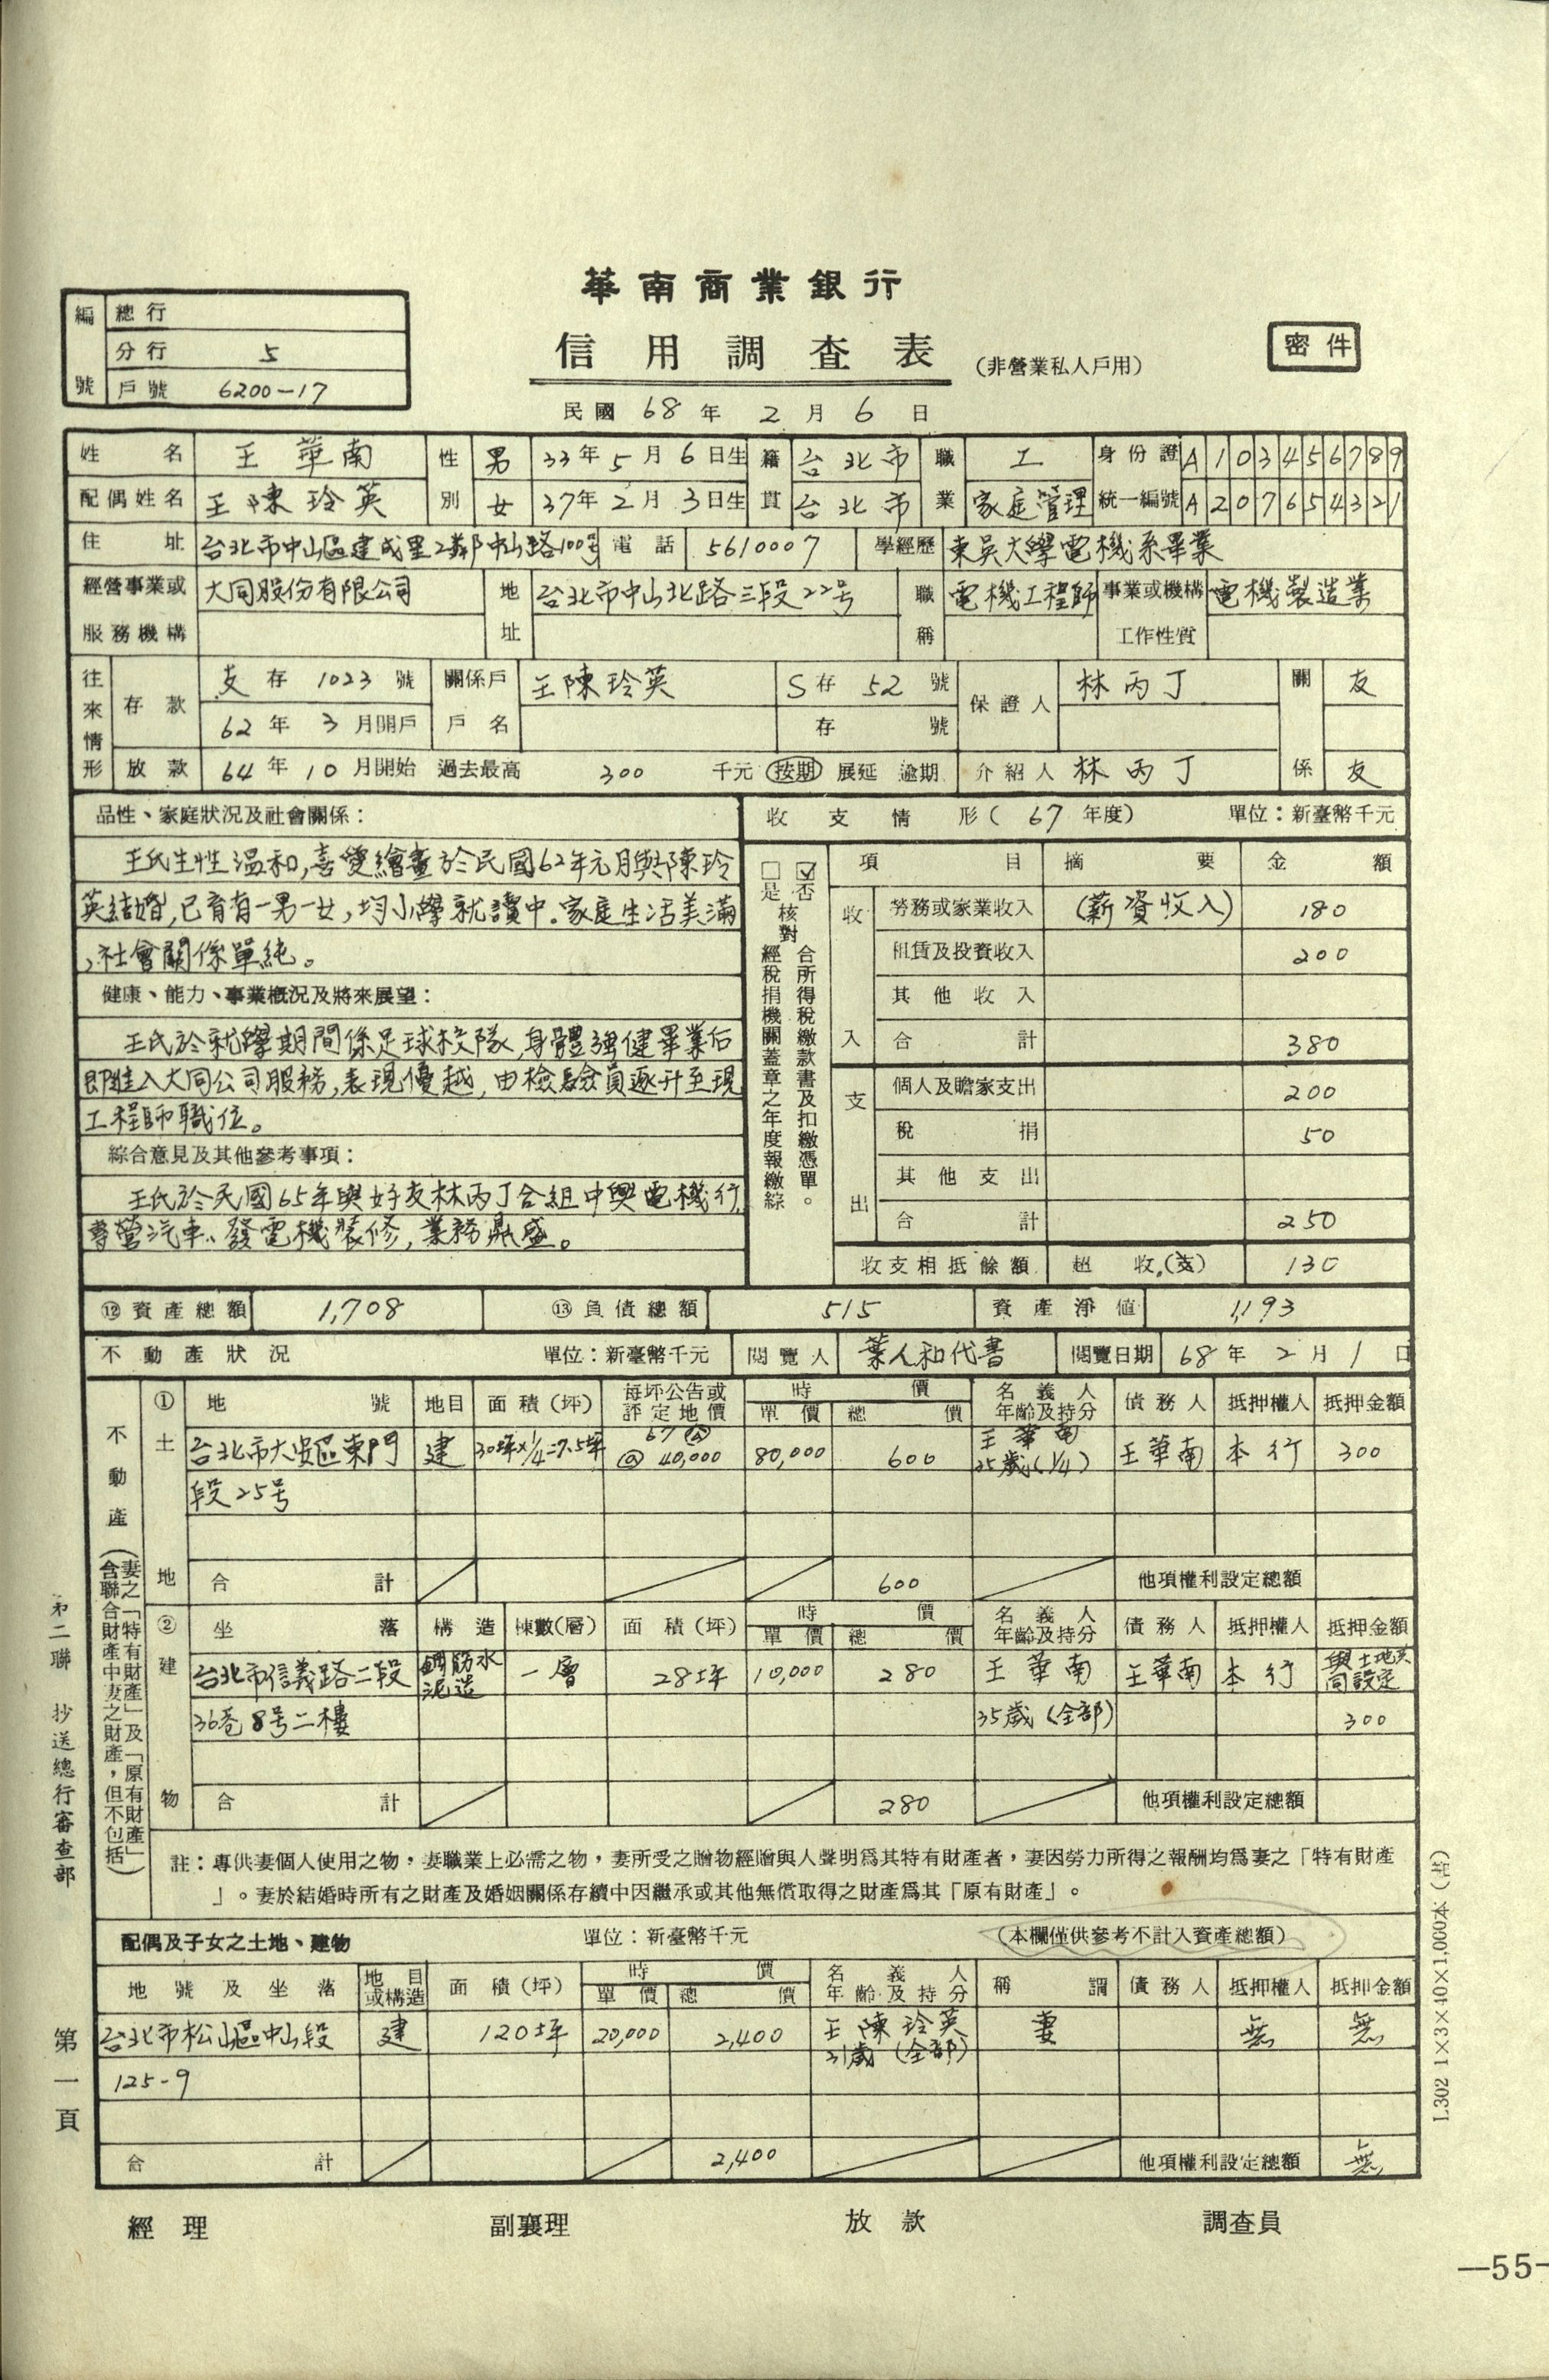 華南商業銀行
信用調查表 (非營業私人戶用)
密件
編號
總行
分行 5
戶號 6200-17
民國 68 年 2 月 6 日
姓名 王華南 性別 男 33年 5 月 6 日生 籍貫 台北市 職業 工 身份證 A103456789
配偶姓名 王陳玲英 女 37年 2 月 3日生 台北市 家庭管理 統一編號 A207654321
住址 台北市中山區建成里2鄰中山路100號 電話 5610007 學經歷 東吳大學電機系畢業
經營事業或服務機構 大同股份有限公司 地址 台北市中山北路三段22号 職稱 電機工程師 事業或機構工作性質 電機製造業
往來情形 存款 支存 1023 號 關係戶戶名 王陳玲英 S存 52 號 保證人 林丙丁 關係 友
62 年 3 月開戶 存 號
放款 64 年 10 月開始 過去最高 300 千元 按期 展延 逾期 介紹人 林丙丁 友
品性、家庭狀況及社會關係：
王氏生性溫和,喜愛繪畫於民國62年元月與陳玲
英結婚,已育有一男一女,均小學就讀中.家庭生活美滿
,社會關係單純。
健康、能力、事業概況及將來展望：
王氏於就學期間係足球校隊,身體強健畢業后
即進入大同公司服務,表現優越,由檢驗員逐升至現
工程師職位。
綜合意見及其他參考事項：
王氏於民國65年與好友林丙丁合組中興電機行,
專營汽車、發電機裝修,業務鼎盛。
收支情形( 67 年度) 單位：新臺幣千元
□是 ☑否 核對
經稅捐機關蓋章之年度報繳綜
合所得稅繳款書及扣繳憑單。
項目 摘要 金額
收入 勞務或家業收入 (薪資收入) 180
租賃及投資收入 200
其他收入
合計 380
支出 個人及贍家支出 200
稅捐 50
其他支出
合計 250
收支相抵餘額 超 收(支) 130
⑫資產總額 1,708 ⑬負債總額 515 資產淨值 1,193
不動產狀況 單位：新臺幣千元 閱覽人 葉人和代書 閱覽日期 68 年 2 月 1 日
不動產
(妻之「特有財產」及「原有財產」
含聯合財產中妻之財產，但不包括)
①土地 地號 地目 面積(坪) 每坪公告或評定地價 時價 單價 總價 名義人年齡及持分 債務人 抵押權人 抵押金額
台北市大安區東門 建 30坪×1/4=7.5坪 67 @ 40,000 80,000 600 王華南 35歲(1/4) 王華南 本行 300
段25号
合計 600 他項權利設定總額
②建物 坐落 構造 棟數(層) 面積(坪) 時價 單價 總價 名義人年齡及持分 債務人 抵押權人 抵押金額
台北市信義路二段 鋼筋水泥造 一層 28坪 10,000 280 王華南 王華南 本行 與土地共同設定
36巷8号二樓 35歲(全部) 300
合計 280 他項權利設定總額
註：專供妻個人使用之物，妻職業上必需之物，妻所受之贈物經贈與人聲明為其特有財產者，妻因勞力所得之報酬均為妻之「特有財產
」。妻於結婚時所有之財產及婚姻關係存續中因繼承或其他無償取得之財產為其「原有財產」。
配偶及子女之土地、建物 單位：新臺幣千元 (本欄僅供參考不計入資產總額)
地號及坐落 地目或構造 面積(坪) 時價 單價 總價 名義人年齡及持分 稱謂 債務人 抵押權人 抵押金額
台北市松山區中山段 建 120坪 20,000 2,400 王陳玲英 31歲(全部) 妻 無 無
125-9
合計 2,400 他項權利設定總額 無
經理 副襄理 放款 調查員
第二聯 抄送總行審查部
第一頁
L302 1×3×40×1,000本
—55—